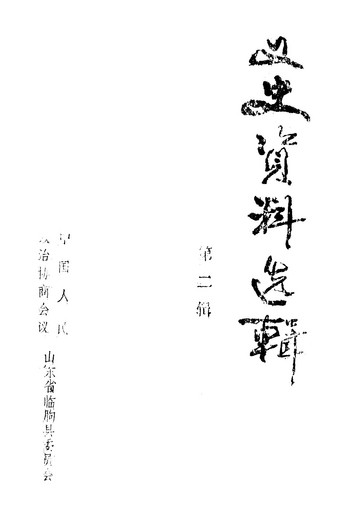 文史資料选輯
第二辑
中国人民
政治协商会议
山东省临朐县委员会